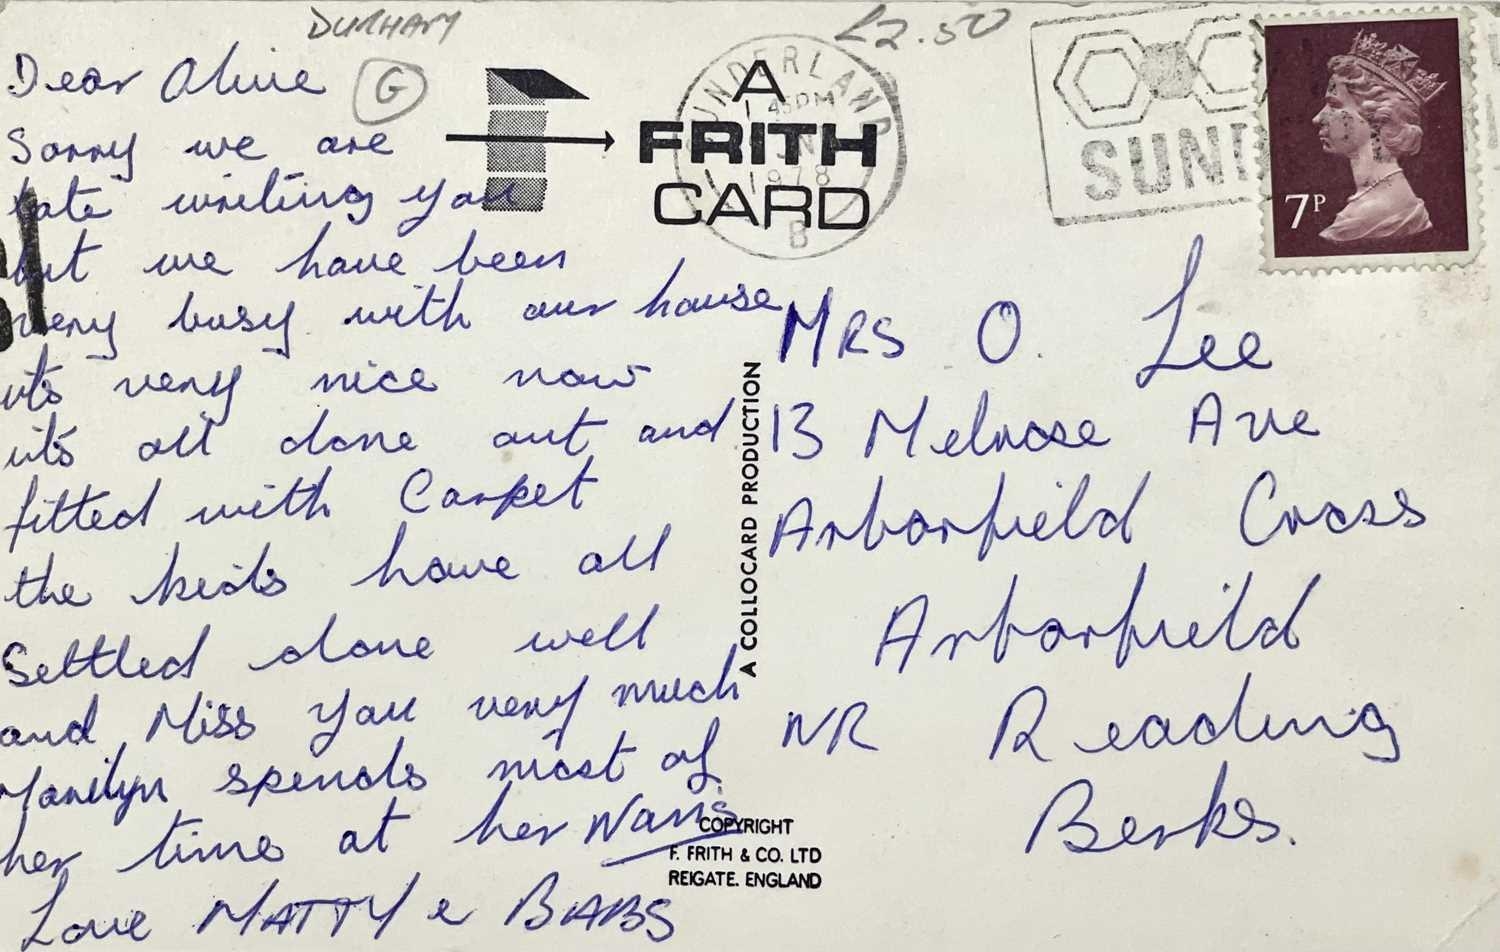 DURHAM
£2.50
G
Dear Olive
Sorry we are
late writing you
but we have been
very busy with our house
its very nice now
its all done out and
fitted with Carpet
the kids have all
Settled done well
and Miss you very much
Marilyn spends most of
her time at her Nan's
Love MATTY & BABS
A
FRITH
CARD
SUNDERLAND
1 45PM
JNE
1978
B
SUND
7P
A COLLOCARD PRODUCTION
COPYRIGHT
F. FRITH & CO. LTD
REIGATE. ENGLAND
MRS O. Lee
13 Melrose Ave
Arborfield Cross
Arborfield
NR Reading
Berks.